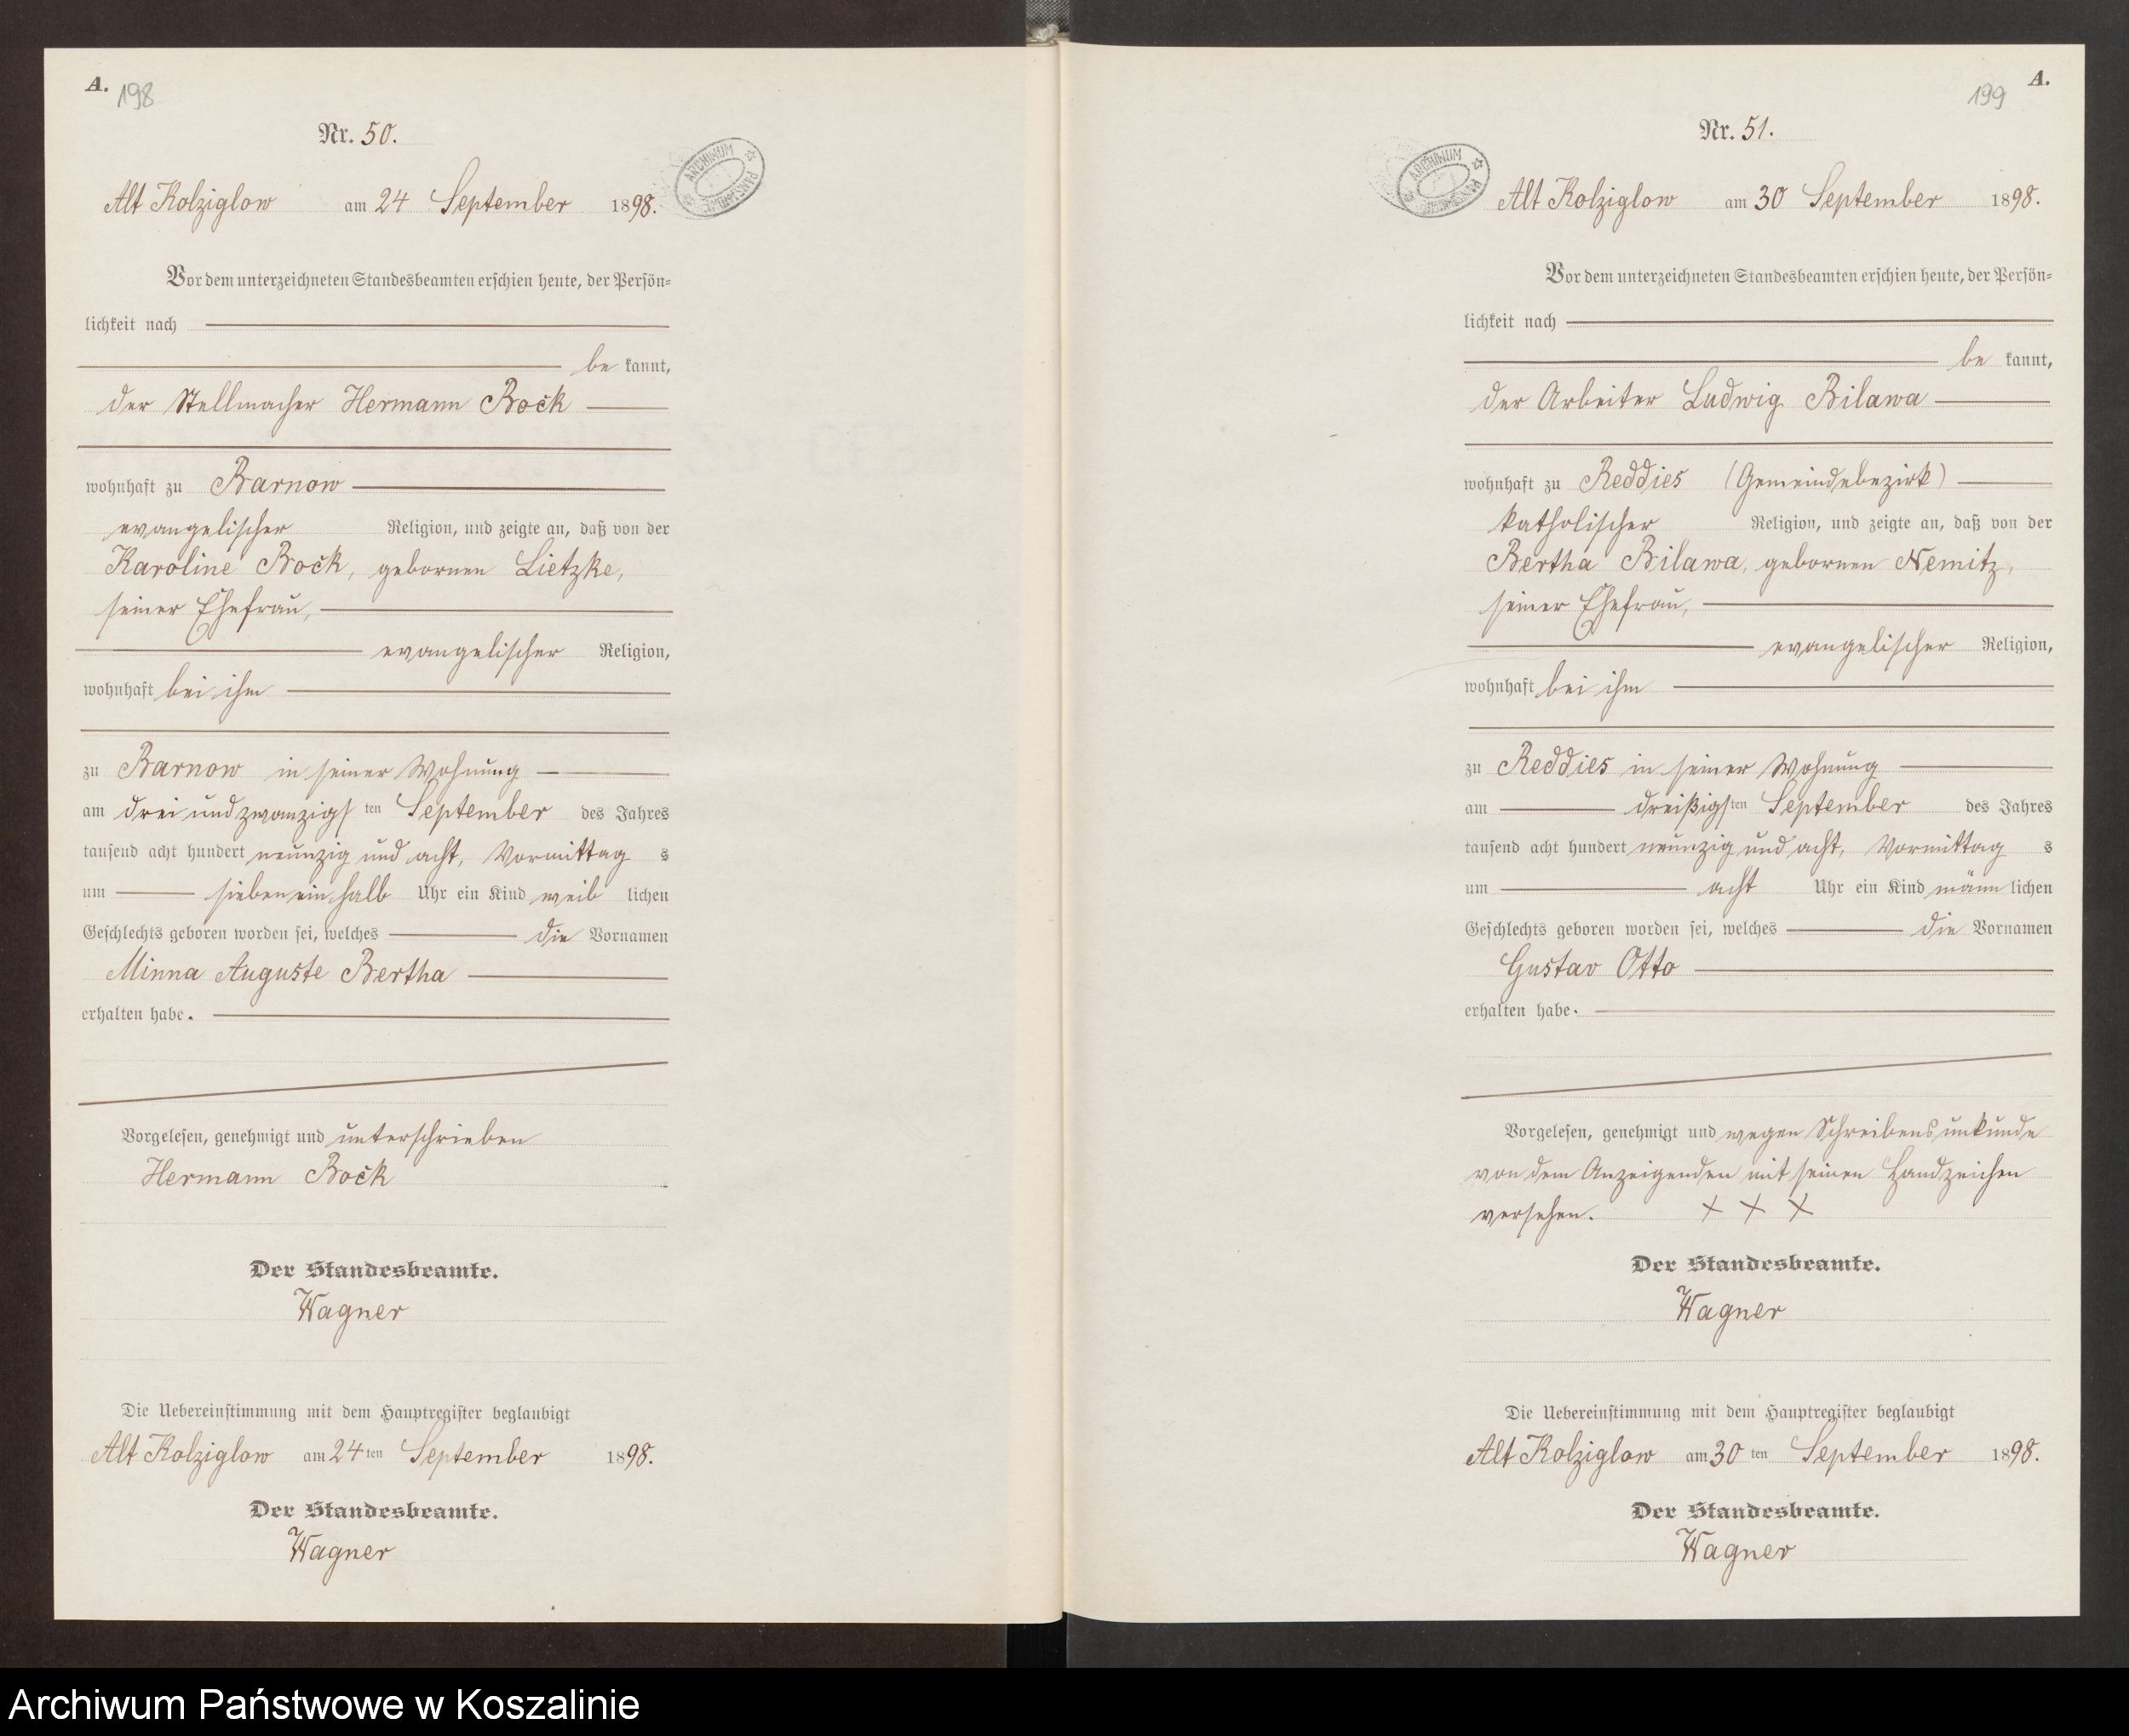 A.
198
Nr. 50.
ARCHIWUM
Alt Kolziglow am 24 September 1898.
Vor dem unterzeichneten Standesbeamten erschien heute, der Persön-
lichkeit nach
be kannt,
der Stellmacher Hermann Bock
wohnhaft zu Barnow
evangelischer Religion, und zeigte an, daß von der
Karoline Bock, gebornen Lietzke,
seiner Ehefrau,
evangelischer Religion,
wohnhaft bei ihm
zu Barnow in seiner Wohnung
am drei und zwanzigs ten September des Jahres
tausend acht hundert neunzig und acht, Vormittag s
um sieben ein halb Uhr ein Kind weib lichen
Geschlechts geboren worden sei, welches die Vornamen
Minna Auguste Bertha
erhalten habe.
Vorgelesen, genehmigt und unterschrieben
Hermann Bock
Der Standesbeamte.
Wagner
Die Uebereinstimmung mit dem Hauptregister beglaubigt
Alt Kolziglow am 24 ten September 1898.
Der Standesbeamte.
Wagner
A.
199
Nr. 51.
ARCHIWUM
Alt Kolziglow am 30 September 1898.
Vor dem unterzeichneten Standesbeamten erschien heute, der Persön-
lichkeit nach
be kannt,
der Arbeiter Ludwig Bilawa
wohnhaft zu Reddies (Gemeindebezirk)
katholischer Religion, und zeigte an, daß von der
Bertha Bilawa, gebornen Nemitz,
seiner Ehefrau,
evangelischer Religion,
wohnhaft bei ihm
zu Reddies in seiner Wohnung
am dreißigs ten September des Jahres
tausend acht hundert neunzig und acht, Vormittag s
um acht Uhr ein Kind männ lichen
Geschlechts geboren worden sei, welches die Vornamen
Gustav Otto
erhalten habe.
Vorgelesen, genehmigt und wegen Schreibensunkunde
von dem Anzeigenden mit seinen Handzeichen
versehen. X X X
Der Standesbeamte.
Wagner
Die Uebereinstimmung mit dem Hauptregister beglaubigt
Alt Kolziglow am 30 ten September 1898.
Der Standesbeamte.
Wagner
Archiwum Państwowe w Koszalinie